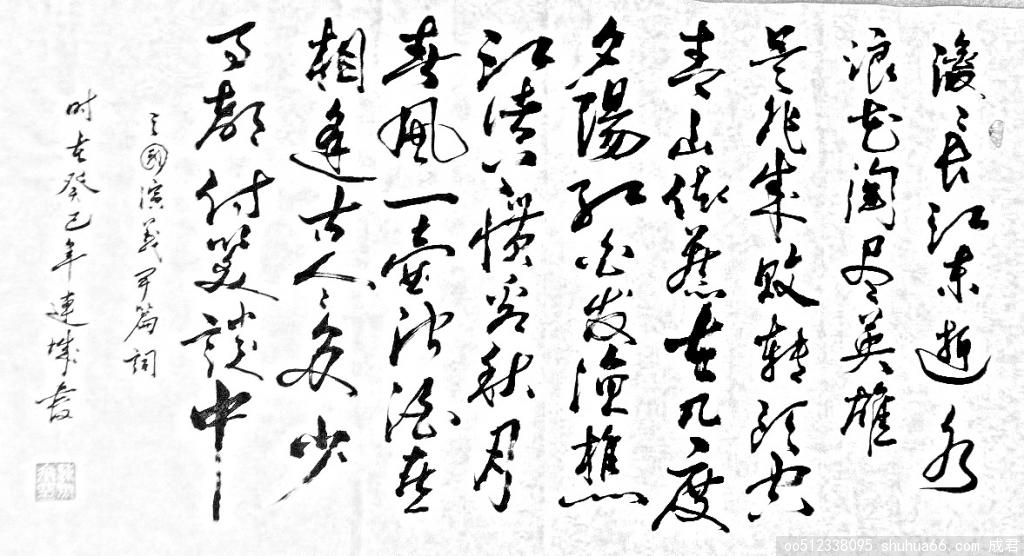 滚滚长江东逝水
浪花淘尽英雄
是非成败转头空
青山依舊在几度
夕陽红白发渔樵
江渚上惯看秋月
春風一壶浊酒喜
相逢古今多少
事都付笑谈中
三国演义开篇词
时在癸巳年連城
oo512338095 shuhua66.com 成君